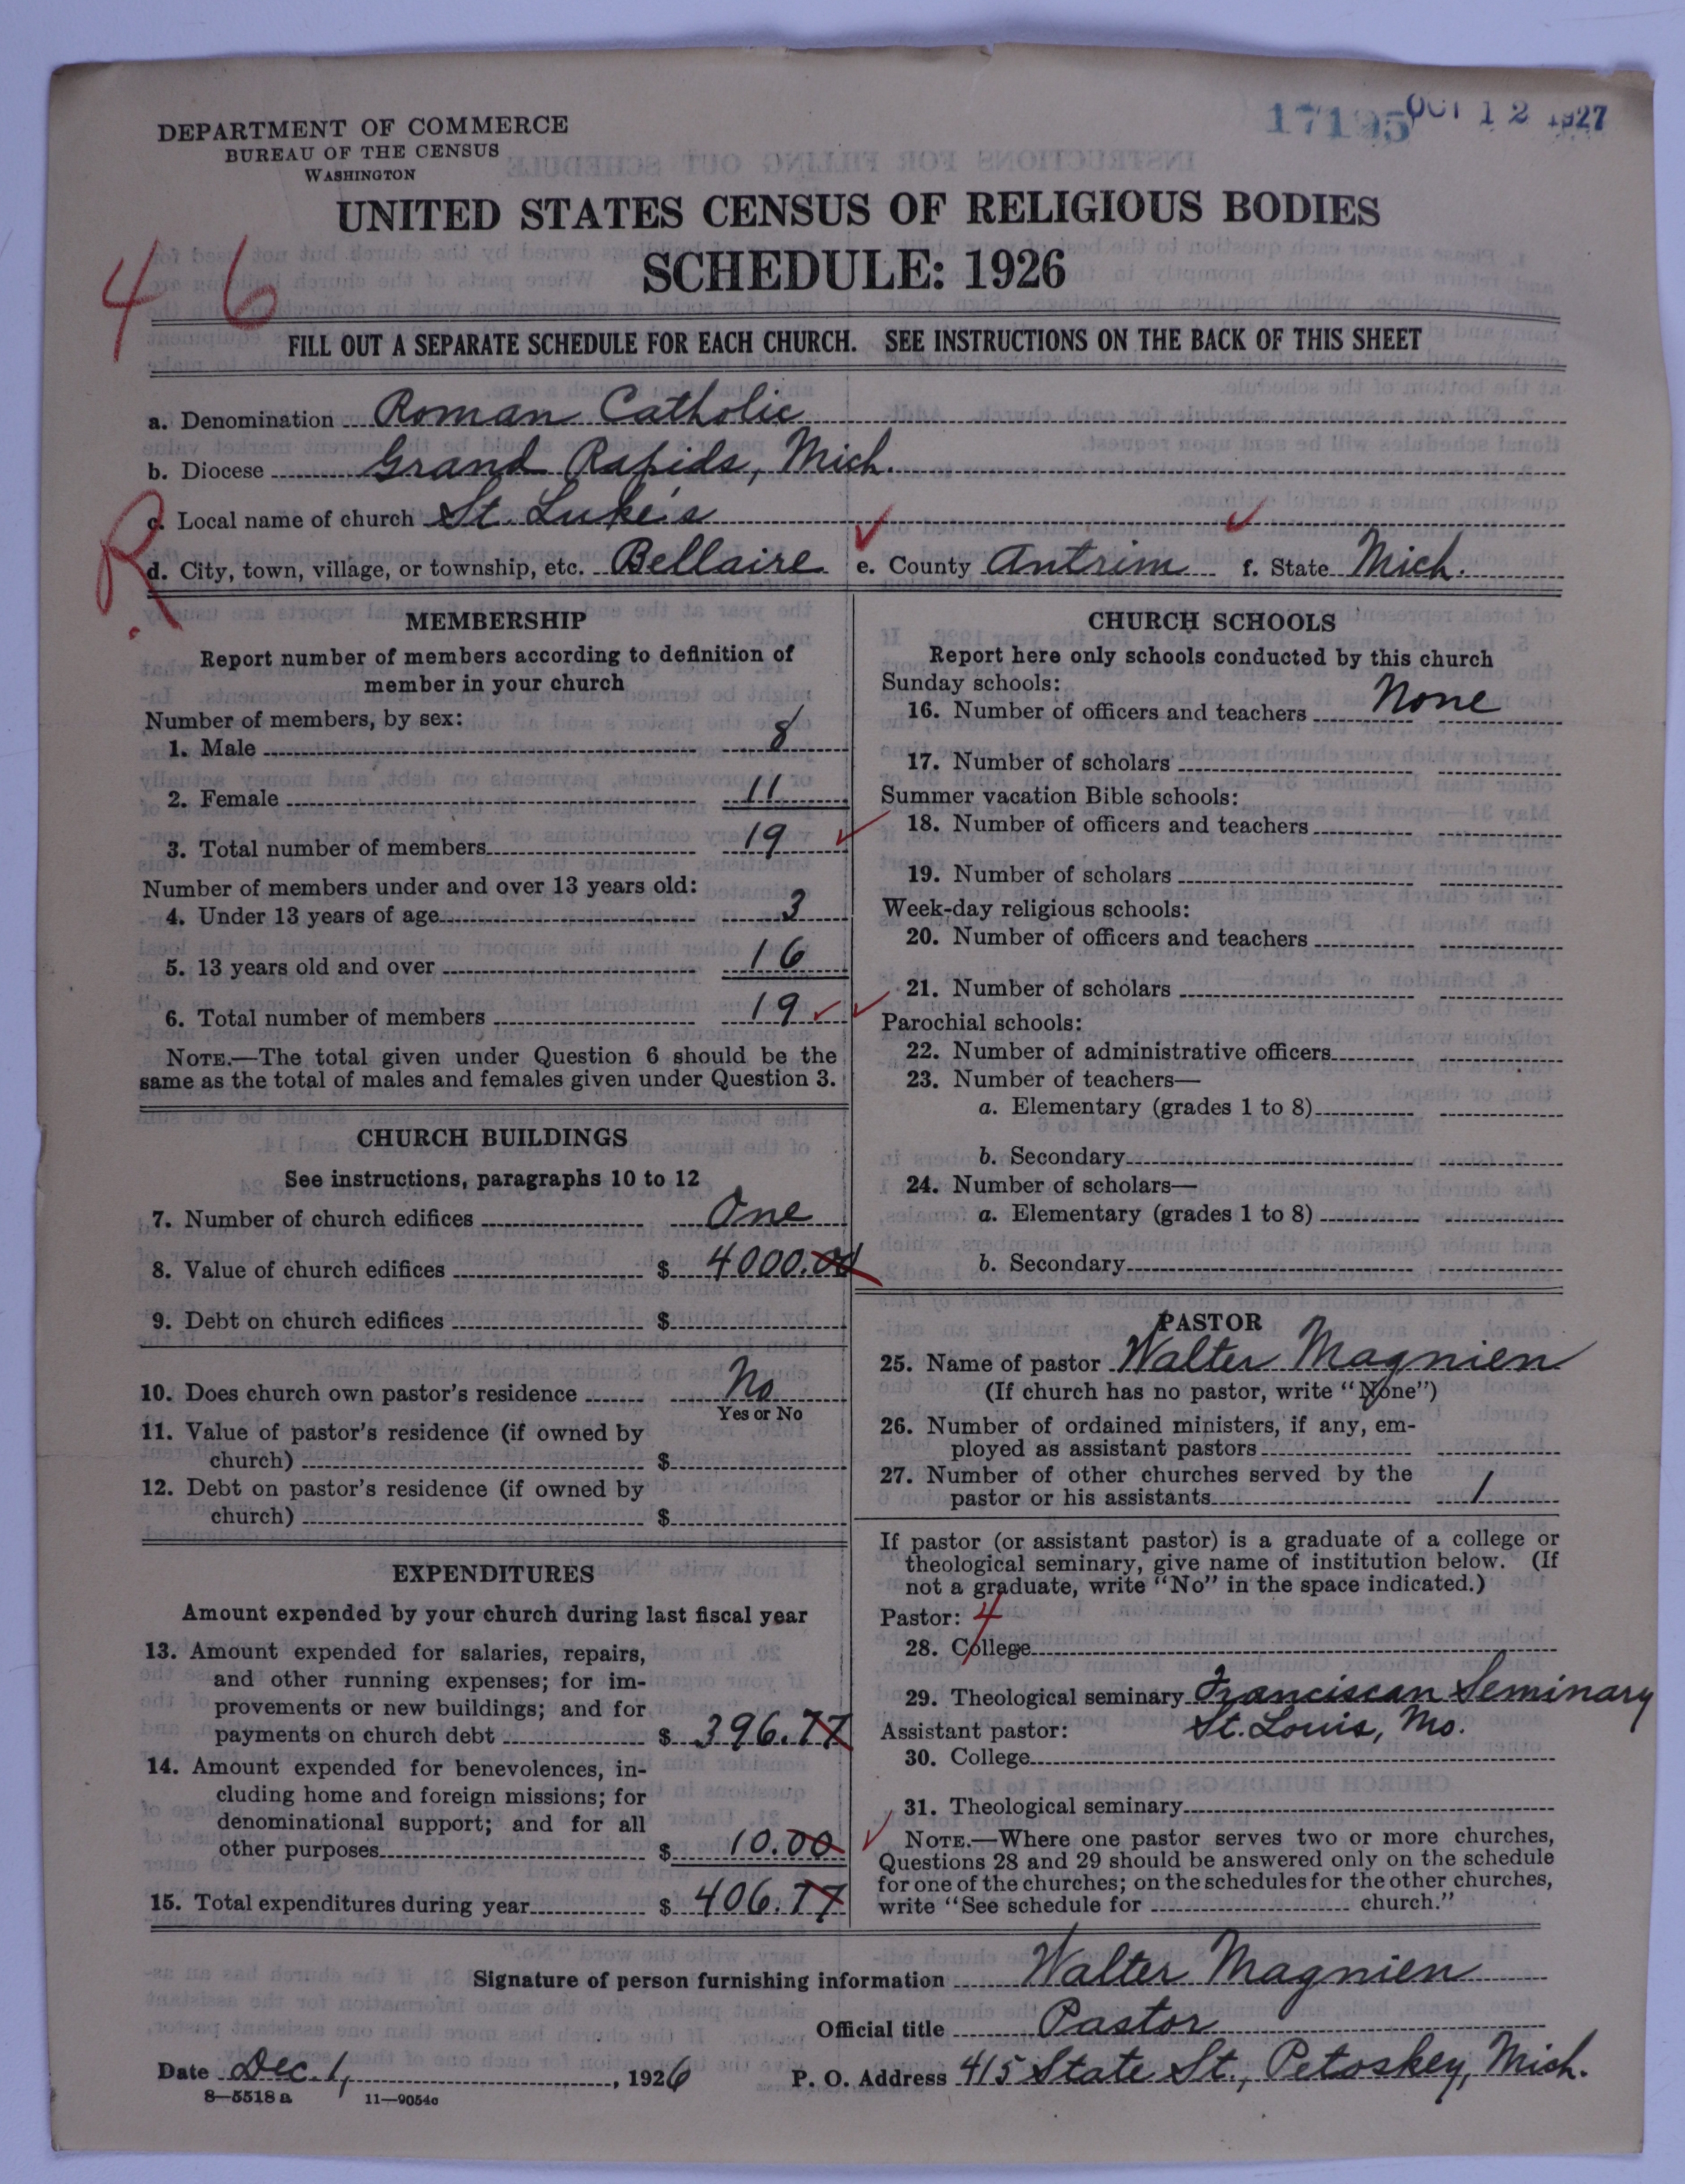 17195 OCT 12 1927
DEPARTMENT OF COMMERCE
BUREAU OF THE CENSUS
WASHINGTON
UNITED STATES CENSUS OF RELIGIOUS BODIES
SCHEDULE: 1926
4 6
FILL OUT A SEPARATE SCHEDULE FOR EACH CHURCH. SEE INSTRUCTIONS ON THE BACK OF THIS SHEET
a. Denomination Roman Catholic
b. Diocese Grand Rapids, Mich.
c. Local name of church St. Luke's
R.
d. City, town, village, or township, etc. Bellaire e. County Antrim f. State Mich.
MEMBERSHIP
Report number of members according to definition of
member in your church
Number of members, by sex:
1. Male 8
2. Female 11
3. Total number of members 19
Number of members under and over 13 years old:
4. Under 13 years of age 3
5. 13 years old and over 16
6. Total number of members 19
NOTE.—The total given under Question 6 should be the
same as the total of males and females given under Question 3.
CHURCH BUILDINGS
See instructions, paragraphs 10 to 12
7. Number of church edifices One
8. Value of church edifices $ 4000.00
9. Debt on church edifices $
10. Does church own pastor's residence No
Yes or No
11. Value of pastor's residence (if owned by
church) $
12. Debt on pastor's residence (if owned by
church) $
EXPENDITURES
Amount expended by your church during last fiscal year
13. Amount expended for salaries, repairs,
and other running expenses; for im-
provements or new buildings; and for
payments on church debt $ 396.77
14. Amount expended for benevolences, in-
cluding home and foreign missions; for
denominational support; and for all
other purposes $ 10.00
15. Total expenditures during year $ 406.77
CHURCH SCHOOLS
Report here only schools conducted by this church
Sunday schools:
16. Number of officers and teachers None
17. Number of scholars
Summer vacation Bible schools:
18. Number of officers and teachers
19. Number of scholars
Week-day religious schools:
20. Number of officers and teachers
21. Number of scholars
Parochial schools:
22. Number of administrative officers
23. Number of teachers—
a. Elementary (grades 1 to 8)
b. Secondary
24. Number of scholars—
a. Elementary (grades 1 to 8)
b. Secondary
PASTOR
25. Name of pastor Walter Magnien
(If church has no pastor, write "None")
26. Number of ordained ministers, if any, em-
ployed as assistant pastors
27. Number of other churches served by the
pastor or his assistants 1
If pastor (or assistant pastor) is a graduate of a college or
theological seminary, give name of institution below. (If
not a graduate, write "No" in the space indicated.)
Pastor: 4
28. College
29. Theological seminary Franciscan Seminary
Assistant pastor: St. Louis, Mo.
30. College
31. Theological seminary
NOTE.—Where one pastor serves two or more churches,
Questions 28 and 29 should be answered only on the schedule
for one of the churches; on the schedules for the other churches,
write "See schedule for church."
Signature of person furnishing information Walter Magnien
Official title Pastor
Date Dec. 1, 1926 P. O. Address 415 State St., Petoskey, Mich.
8—5518 a 11—9054c